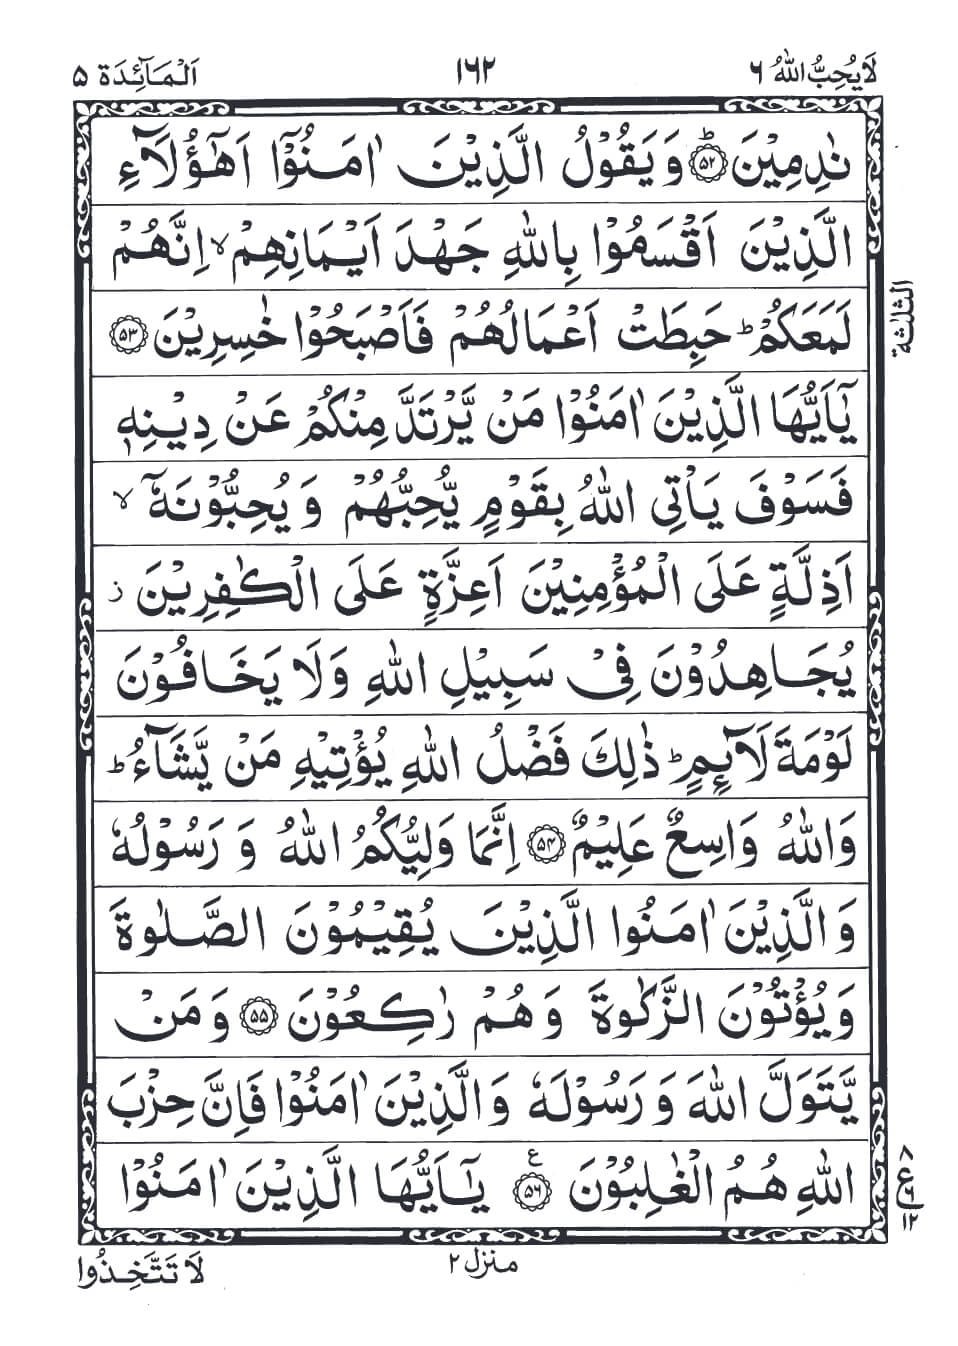 لَا يُحِبُّ اللّٰهُ ٦
١٦٢
اَلْمَآئِدَة ٥
نٰدِمِيْنَ ﴿۵۲﴾ؕ وَ يَقُوْلُ الَّذِيْنَ اٰمَنُوْۤا اَهٰۤؤُلَآءِ
الَّذِيْنَ اَقْسَمُوْا بِاللّٰهِ جَهْدَ اَيْمَانِهِمْۙ اِنَّهُمْ
لَمَعَكُمْؕ حَبِطَتْ اَعْمَالُهُمْ فَاَصْبَحُوْا خٰسِرِيْنَ ﴿۵۳﴾
الثلٰثة
يٰۤاَيُّهَا الَّذِيْنَ اٰمَنُوْا مَنْ يَّرْتَدَّ مِنْكُمْ عَنْ دِيْنِهٖ
فَسَوْفَ يَاْتِى اللّٰهُ بِقَوْمٍ يُّحِبُّهُمْ وَ يُحِبُّوْنَهٗۤ ۙ
اَذِلَّةٍ عَلَى الْمُؤْمِنِيْنَ اَعِزَّةٍ عَلَى الْكٰفِرِيْنَ ز
يُجَاهِدُوْنَ فِىْ سَبِيْلِ اللّٰهِ وَلَا يَخَافُوْنَ
لَوْمَةَ لَآئِمٍؕ ذٰلِكَ فَضْلُ اللّٰهِ يُؤْتِيْهِ مَنْ يَّشَآءُؕ
وَاللّٰهُ وَاسِعٌ عَلِيْمٌ ﴿۵۴﴾ اِنَّمَا وَلِيُّكُمُ اللّٰهُ وَ رَسُوْلُهٗ
وَالَّذِيْنَ اٰمَنُوا الَّذِيْنَ يُقِيْمُوْنَ الصَّلٰوةَ
وَيُؤْتُوْنَ الزَّكٰوةَ وَهُمْ رٰكِعُوْنَ ﴿۵۵﴾ وَمَنْ
يَّتَوَلَّ اللّٰهَ وَ رَسُوْلَهٗ وَالَّذِيْنَ اٰمَنُوْا فَاِنَّ حِزْبَ
اللّٰهِ هُمُ الْغٰلِبُوْنَ ﴿۵۶﴾ع يٰۤاَيُّهَا الَّذِيْنَ اٰمَنُوْا
٨
ع
٦
١٢
منزل ٢
لَا تَتَّخِذُوا